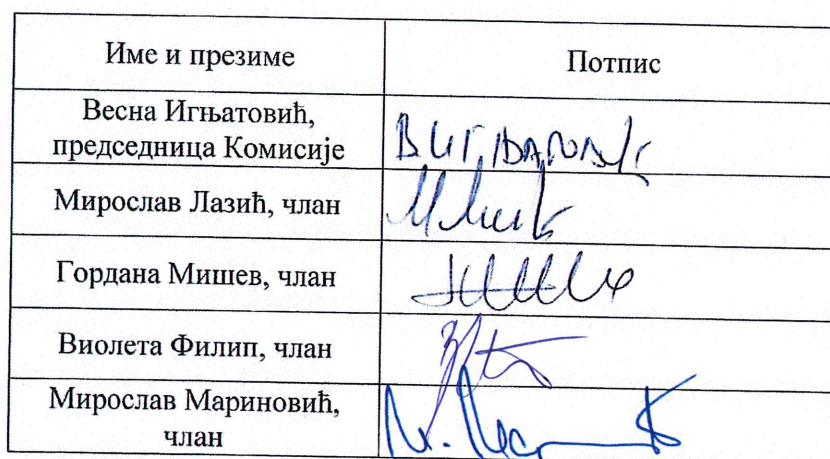 Име и презиме
Потпис
Весна Игњатовић,
председница Комисије
Мирослав Лазић, члан
Гордана Мишев, члан
Виолета Филип, члан
Мирослав Мариновић,
члан